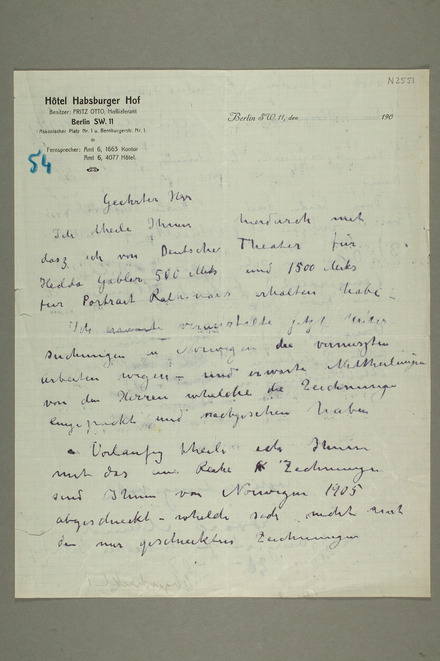 N 2551
Hôtel Habsburger Hof
Besitzer: FRITZ OTTO, Hoflieferant
Berlin SW. 11
Askanischer Platz Nr. 1 u. Bernburgerstr. Nr. 1
Fernsprecher: Amt 6, 1663 Kontor
Amt 6, 4077 Hôtel.
Berlin SW. 11, den 190
54
Geehrter Herr
Ich theile Ihnen hierdurch mit
dasz ich von Deutscher Theater für
Hedda Gabler 500 Mks und 1500 Mks
für Portrait Rathenaus erhalten habe –
Ich veranstalte jetzt
suchungen in Norwegen die vermiszten
arbeiten wegen – und erwarte Mittheilungen
von den Herren welche die Zeichnungen
eingepackt und nachgesehen haben
Vorlaufig theile ich Ihnen
mit das eine Reihe Zeichnungen
sind Ihnen von Norwegen 1905
abgeschickt – sich nicht
den nur geschickten Zeichnungen